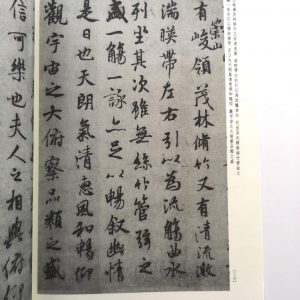 崇山
有峻領茂林脩竹又有清流激
湍暎帶左右引以為流觴曲水
列坐其次雖無絲竹管弦之
盛一觴一詠亦足以暢敘幽情
是日也天朗氣清惠風和暢仰
觀宇宙之大俯察品類之盛
信可樂也夫人之相與俯仰